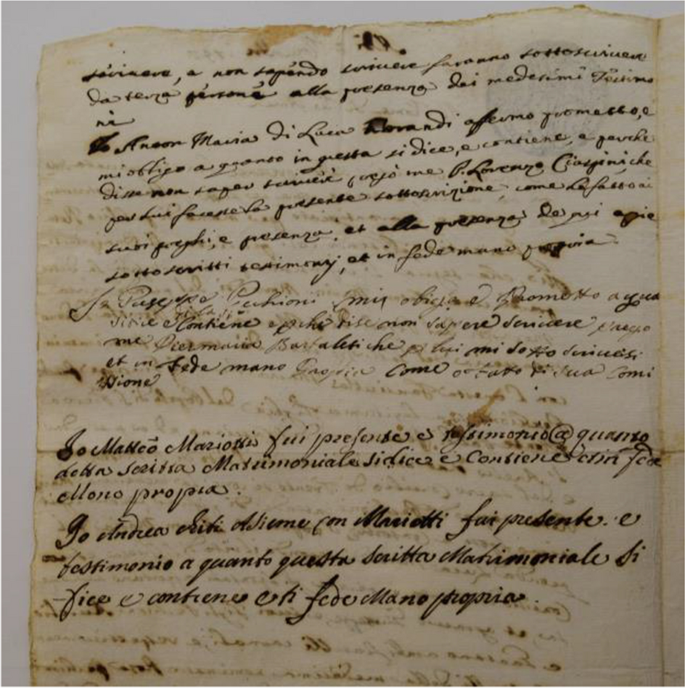 scrivere, e non sapendo scrivere faranno sottoscrivere
da terza persona alla presenza dei medesimi Testimo
ni
Io Anton Maria di Luca affermo prometto, e
mi obligo a quanto in questa si dice, e contiene, e perche
disse non saper scrivere, pregò me P. Lorenzo che
per lui facesse la presente sottoscrizione, come ho fatto ai
suoi preghi, e presenza, et alla presenza de
sottoscritti testimonj, et in fede mano propria
Io Giuseppe mi e Prometto a
dice e Contiene e pche disse non sapere scrivere
me Piermaria che p lui mi sotto
et in fede mano Propria Come o fatto di Sua Comi
sione
Io Matteo Mariotti fui presente e testimonio @ quanto
detta scritta Matrimoniale si dice e Contiene fede
Mono propria.
Io Andrea Asieme con Mariotti fui presente e
testimonio a quanto questa scritta Matrimoniale si
dice e contiene e ti fede Mano propria.